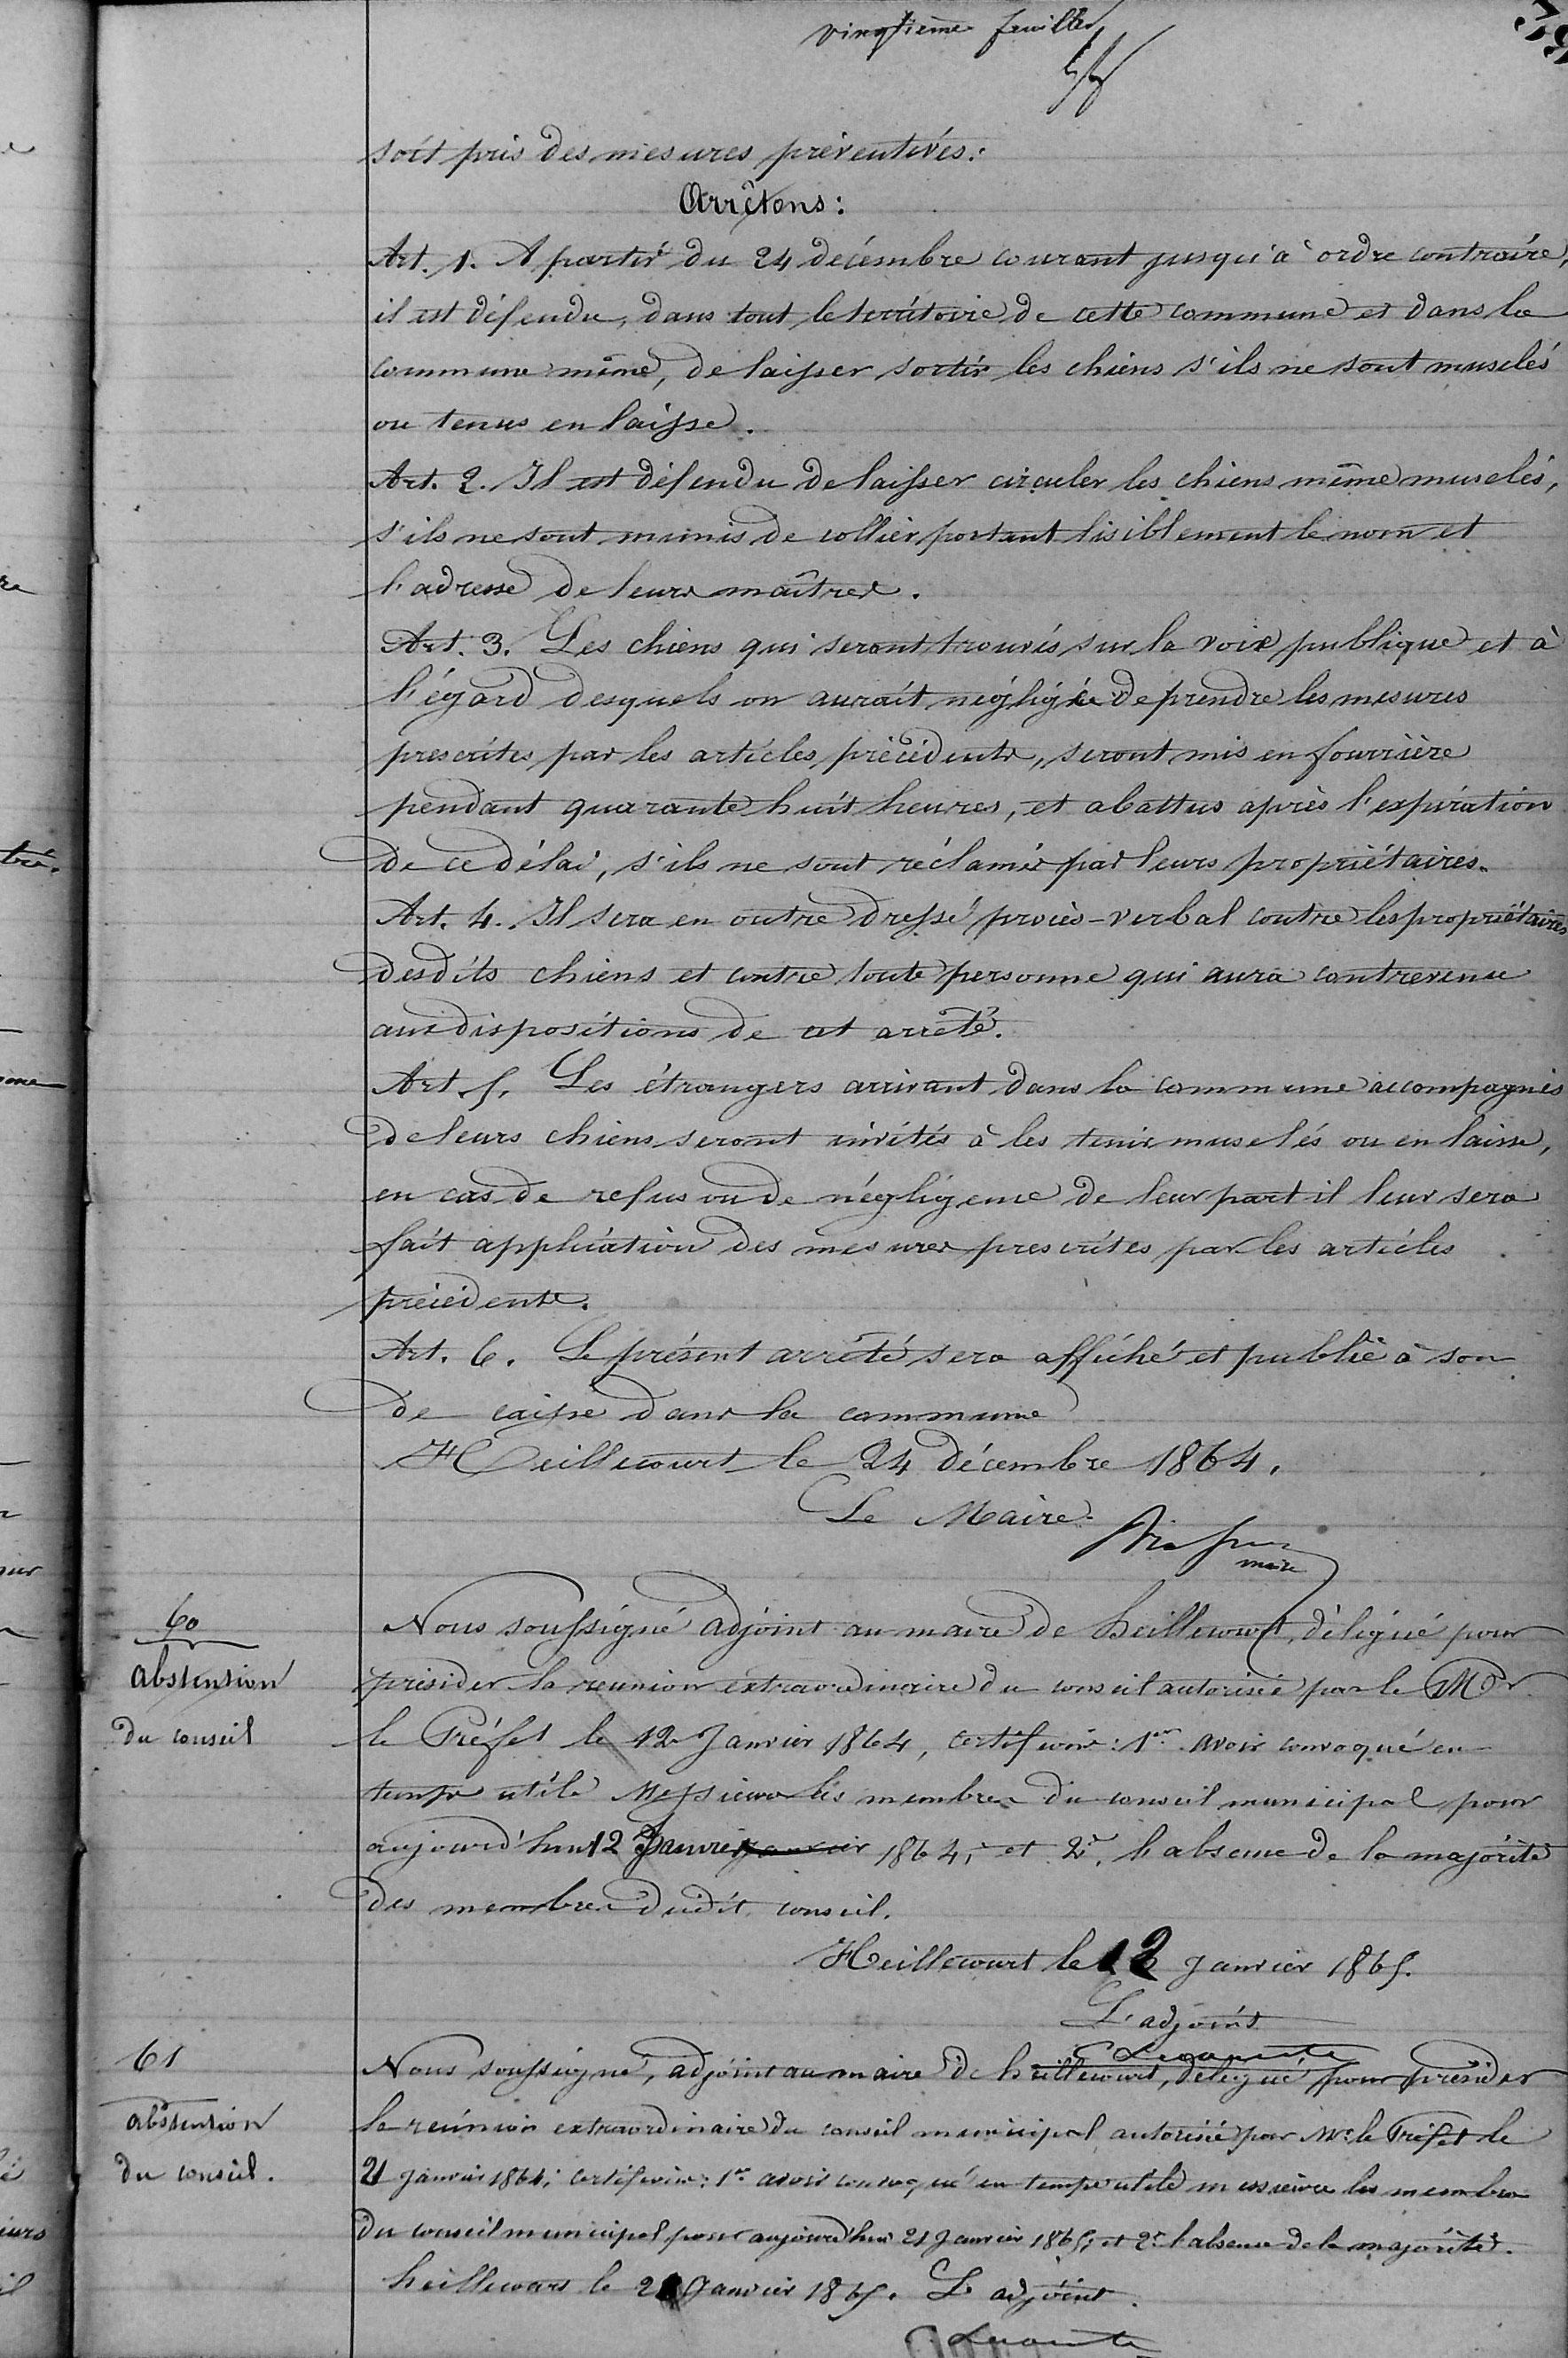 vingtième feuillet
soit pris des mesures préventives:
Arrêtons:
Art. 1. A partir du 24 décembre courant jusqu'à ordre contraire,
il est défendu, dans tout le territoire de cette commune et dans la
commune même, de laisser sortir les chiens s'ils ne sont muselés
ou tenus en laisse.
Art. 2. Il est défendu de laisser circuler les chiens même muselés,
s'ils ne sont munis de collier portant lisiblement le nom et
l'adresse de leurs maîtres.
Art. 3. Les chiens qui seront trouvés sur la voix publique et à
l'égard desquels on aurait négligée de prendre les mesures
prescrites par les articles précédents, seront mis en fourrière
pendant quarante huit heures, et abattus après l'expiration
de ce délai, s'ils ne sont réclamés par leurs propriétaires.
Art. 4. Il sera en outre dressé procès-verbal contre les propriétaires
desdits chiens et contre toute personne qui aura contrevenue
aux dispositions de cet arrêté.
Art. 5. Les étrangers arrivant dans la commune accompagnés
de leurs chiens seront invités à les tenir muselés ou en laisse,
en cas de refus ou de négligence de leur part il leur sera
fait application des mesures prescrites par les articles
précédents.
Art. 6. Le présent arrêté sera affiché et publié à son
de caisse dans la commune
Heillecourt le 24 décembre 1864.
Le Maire
maire
60
abstension
du conseil
Nous soussigné adjoint au maire de heillecourt, délégué pour
présider la reunion extraordinaire du conseil autorisée par le Mr
le Préfet le 12 Janvier 1864, certifions: 1er avoir convoqué en
temps utile Messieurs les membres du conseil municipal pour
aujourd'hui 12 Janvier 1864, et 2e. l'absence de la majorité
des membres dudit conseil.
Heillecourt le 12 Janvier 1865.
L'adjoint
61
abstension
du conseil.
Nous soussigné, adjoint au maire de heillecourt, délégué pour présider
la reúnion extraordinaire du conseil municipal autorisée par Mr. le Préfet le
21 janvier 1864; certifions: 1er avoir convoqué en temps utile messieurs les membres
du conseil municipal pour aujourd'hui 21 Janvier 1865; et 2e l'absence de la majorité.
heillecourt le 21 Janvier 1865. L'adjoint.